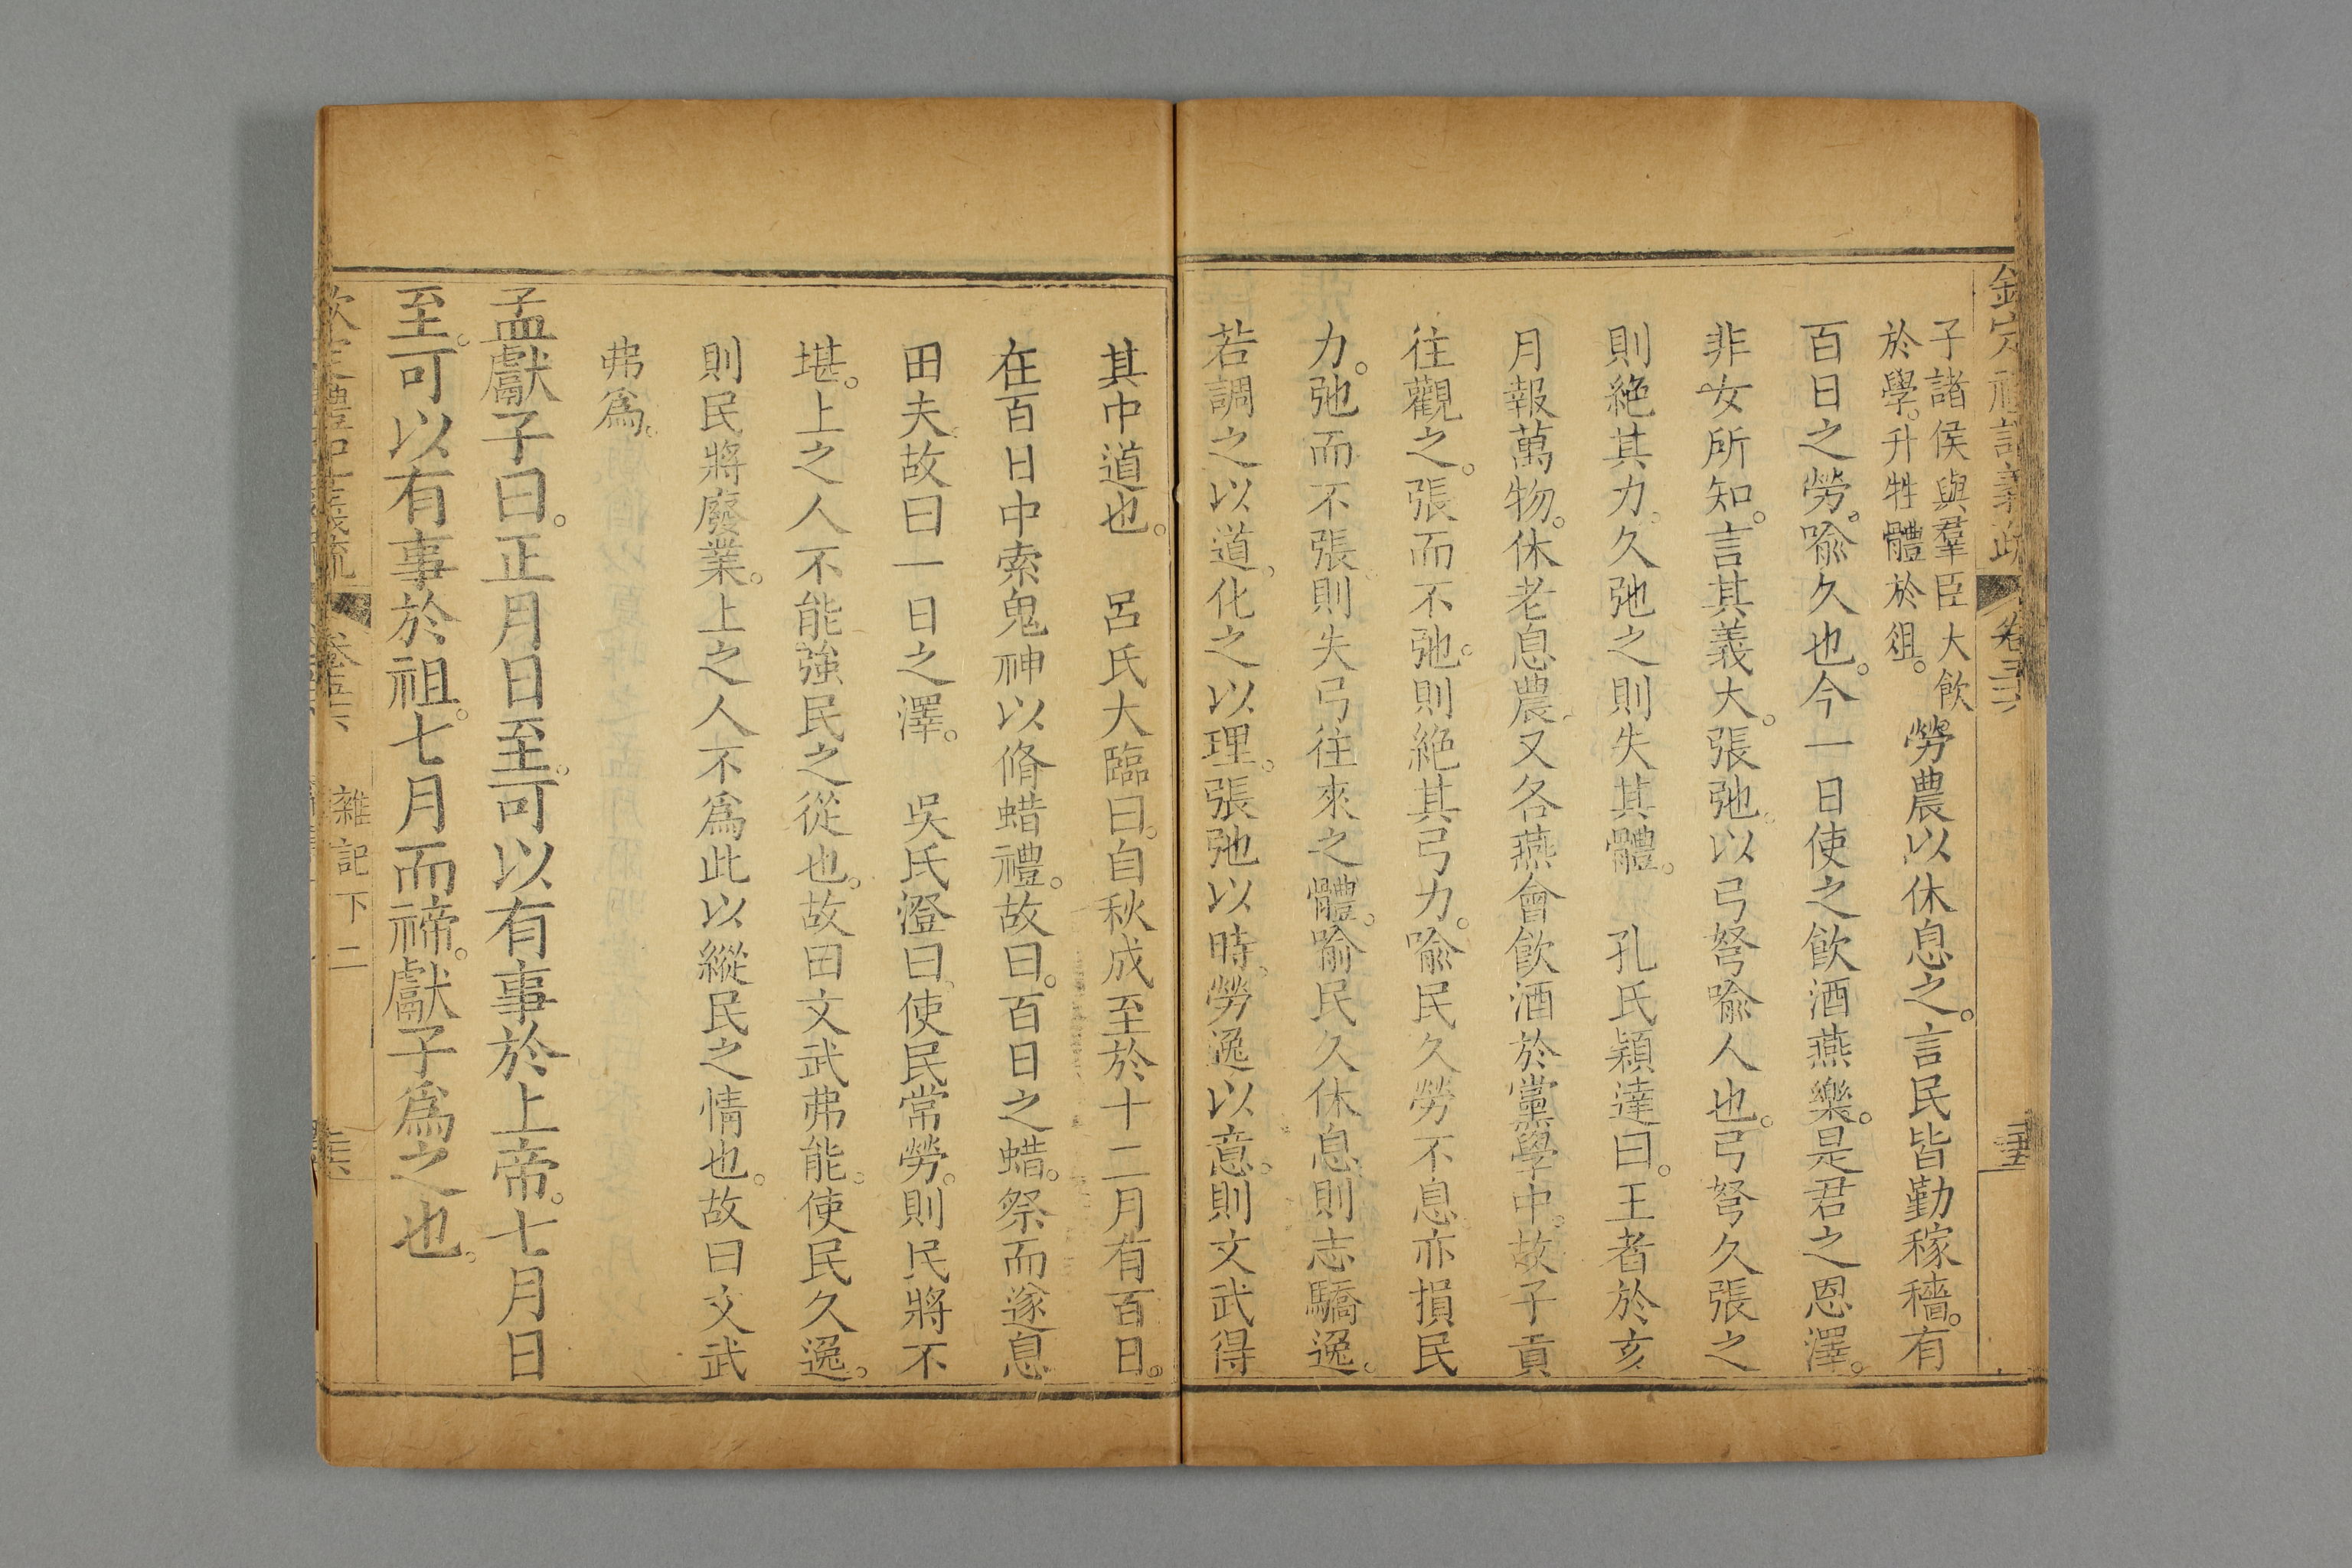 子諸侯與羣臣大飲
於學。升牲體於俎。
勞農以休息之。言民皆勤稼穡。有
百日之勞。喻久也。今一日使之飲酒燕樂。是君之恩澤。
非女所知。言其義大。張弛。以弓弩喻人也。弓弩久張之
則絶其力。久弛之則失其體。　孔氏穎達曰。王者於亥
月報萬物。休老息農。又各燕會飲酒於黨學中。故子貢
往觀之。張而不弛。則絶其弓力。喻民久勞不息。亦損民
力。弛而不張。則失弓往來之體。喻民久休息。則志驕逸。
若調之以道。化之以理。張弛以時。勞逸以意。則文武得
其中道也。　呂氏大臨曰。自秋成至於十二月有百日。
在百日中索鬼神以脩蜡禮。故曰。百日之蜡。祭而遂息
田夫。故曰一日之澤。　吳氏澄曰。使民常勞。則民將不
堪。上之人不能強民之從也。故曰文武弗能。使民久逸。
則民將廢業。上之人不爲此以縱民之情也。故曰文武
弗爲。
孟獻子曰。正月日至。可以有事於上帝。七月日
至。可以有事於祖。七月而禘。獻子爲之也。
雜記下二